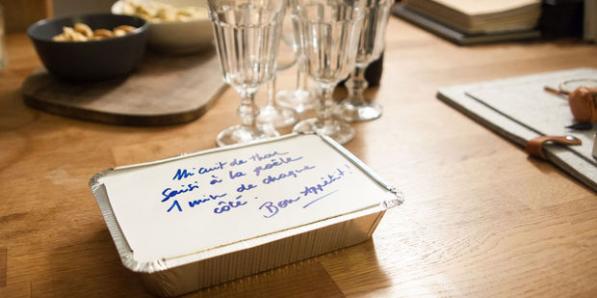 Mi cuit de thon
Saisi à la poêle
1 min de chaque
côté. Bon Appétit!